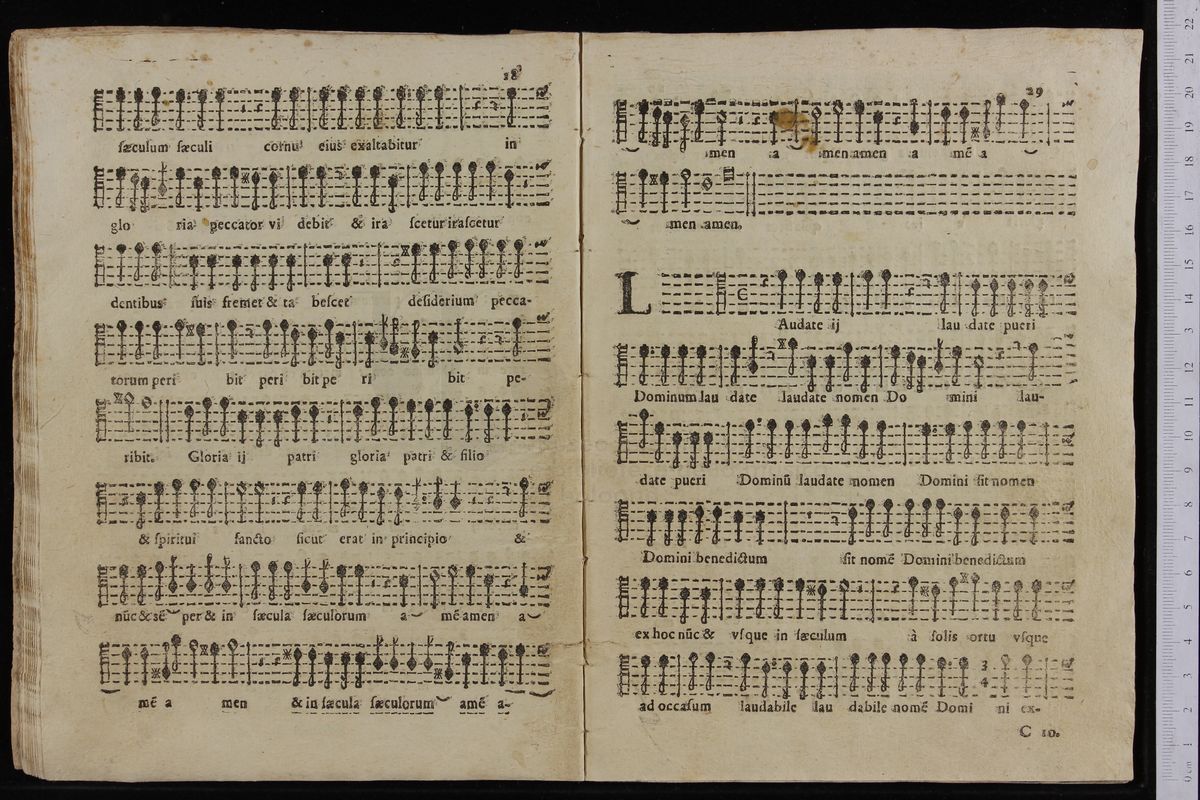 18
sæculum sæculi cornu eius exaltabitur in
glo ria peccator vi debit & ira scetur irascetur
dentibus suis fremet & ta bescet desiderium pecca-
torum peri bit peri bit pe ri bit pe-
ribit. Gloria ij patri gloria patri & filio
& spiritui sancto sicut erat in principio &
nūc & sē per & in sæcula sæculorum a mē amen a
mē a men & in sæcula sæculorum amē a-
29
men a men amen a mē a
men amen.
L
Audate ij lau date pueri
Dominum lau date laudate nomen Do mini lau-
date pueri Dominū laudate nomen Domini sit nomen
Domini benedictum sit nomē Domini benedictum
ex hoc nūc & vsque in sæculum à solis ortu vsque
3
4
ad occasum laudabile lau dabile nomē Domi ni ex-
C 10.